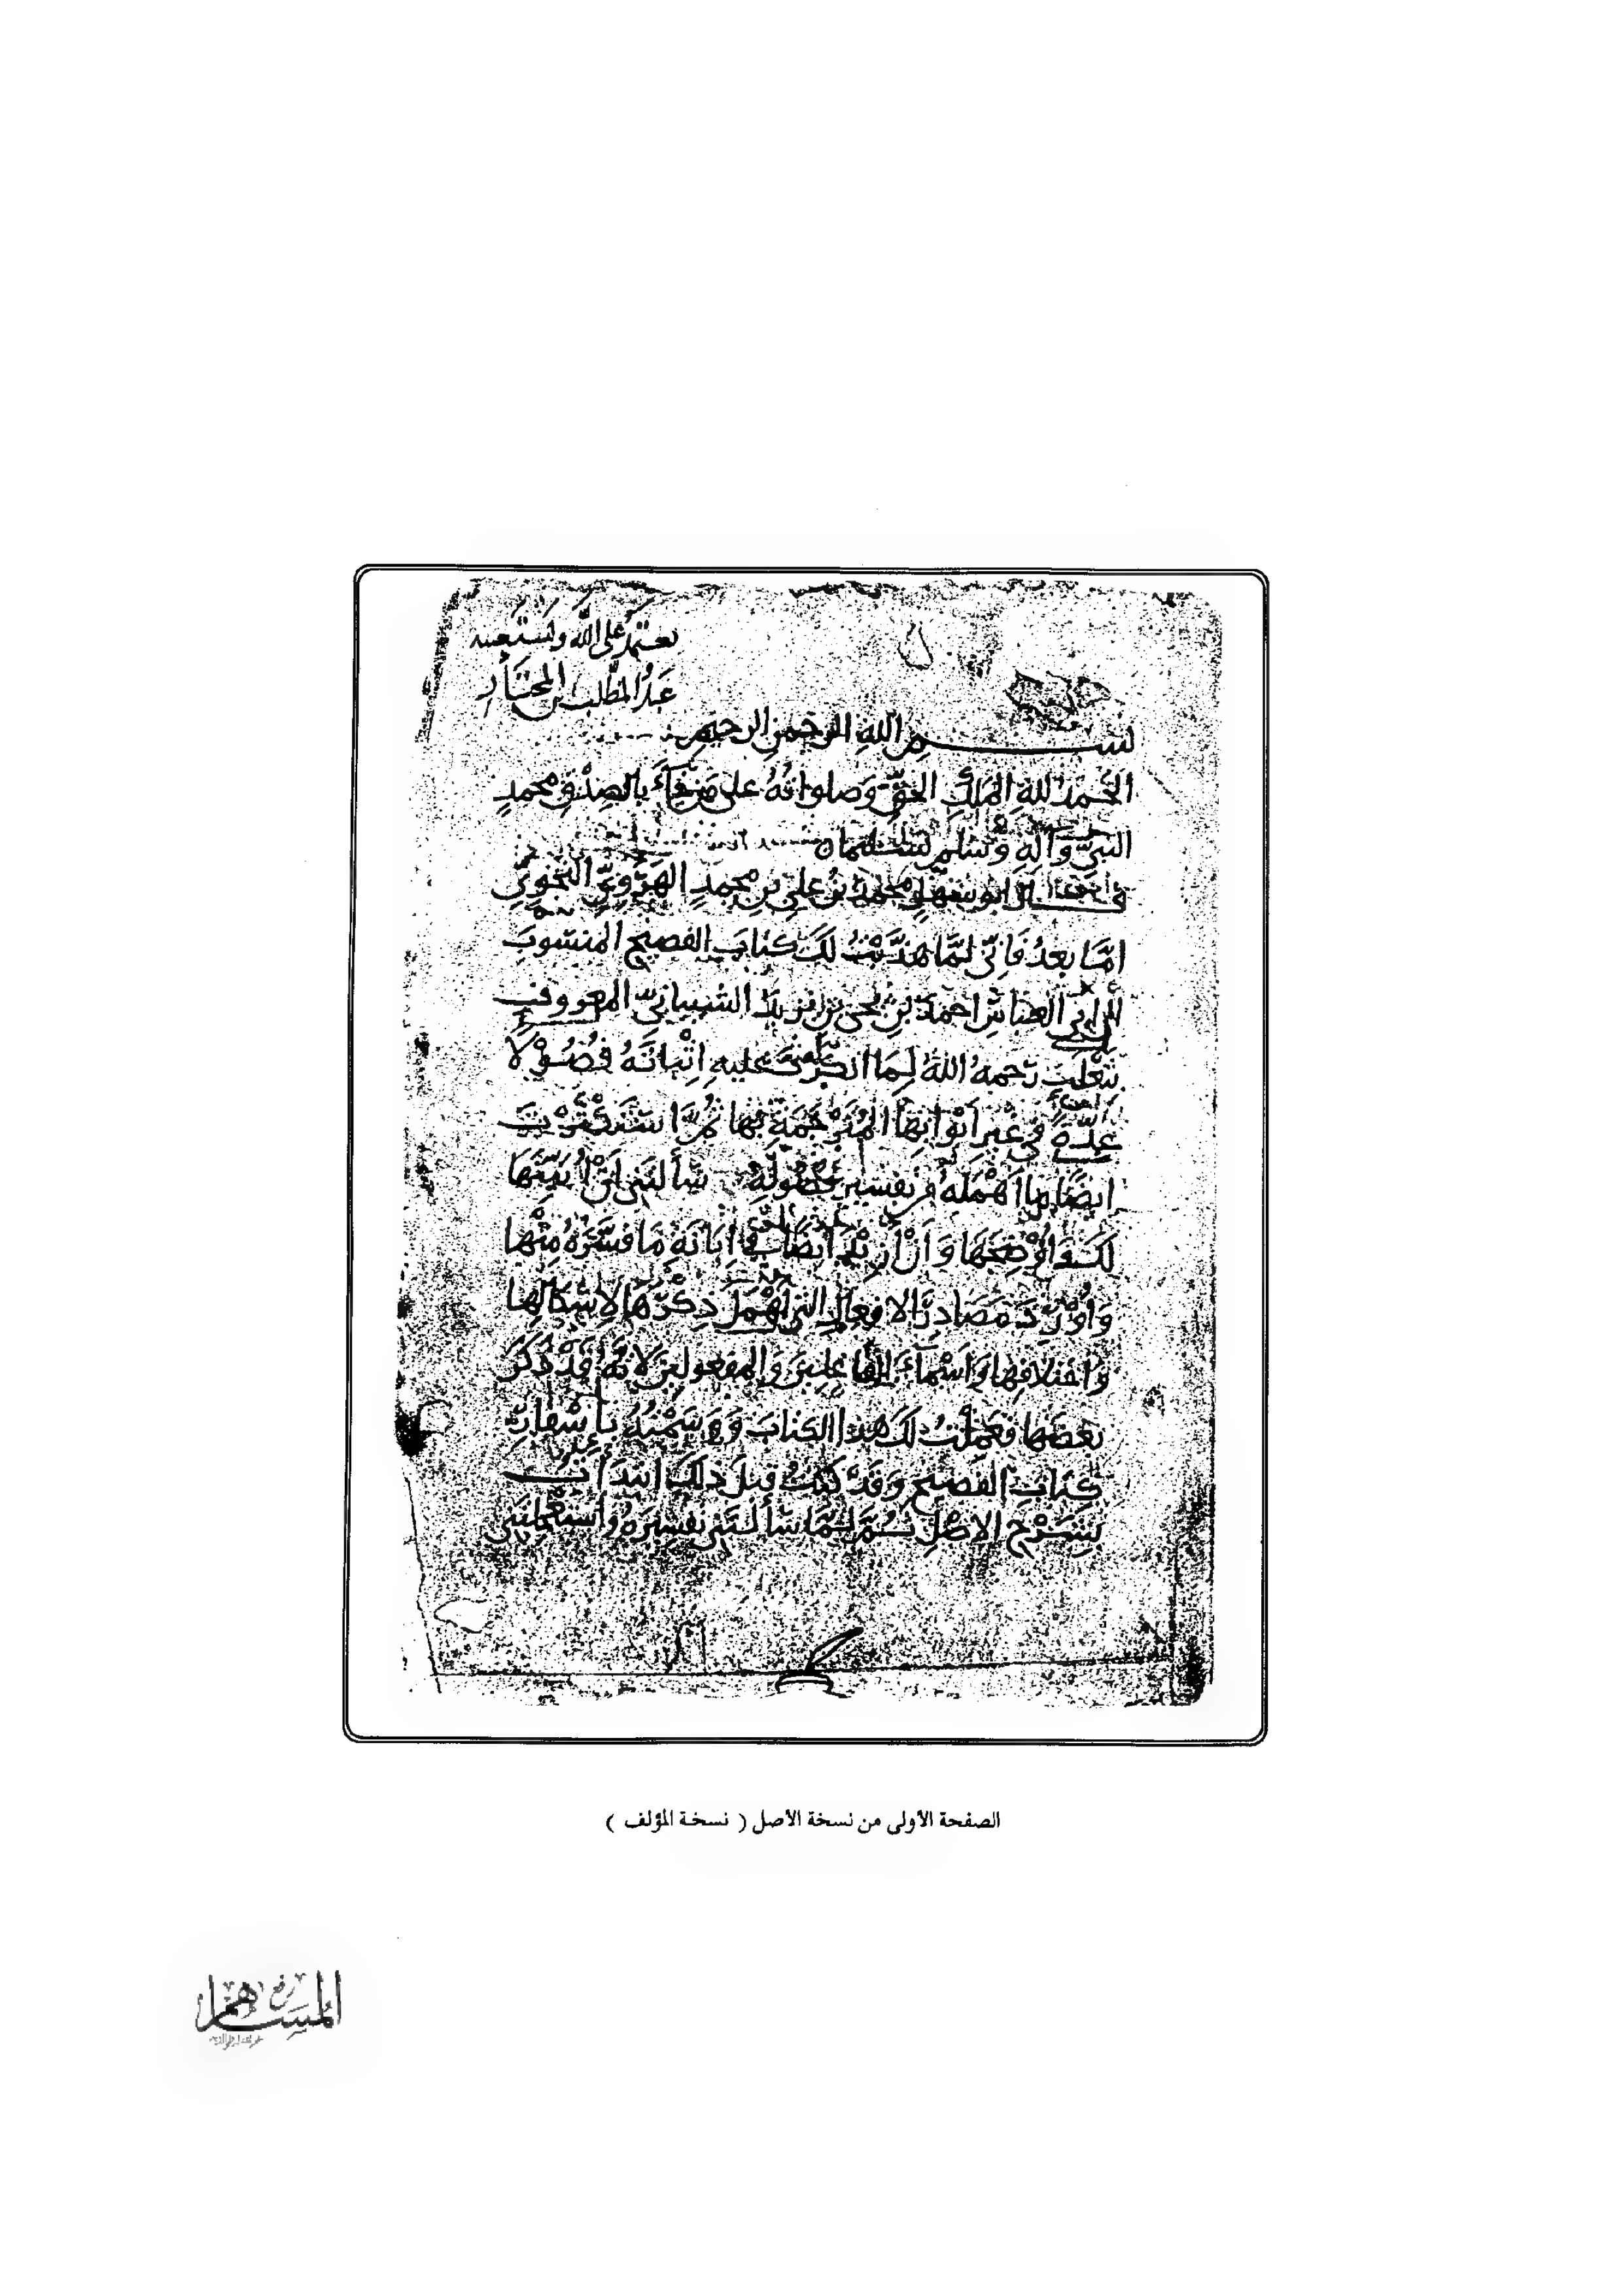 يعتمد على الله ويستعينه
عبد المطلب بن المختار
بسم الله الرحمن الرحيم
الحَمدُ للهِ المَلِكِ الحَقِّ وَصلواتُهُ على مَن جَاءَ بالصِدْقِ محمدٍ
النبيِّ وَآلِهِ وَسَلَّم تسليمًا
قال ابو سهلٍ محمدُ بنُ عليِ بنِ محمدٍ الهَرَوِيُّ النحَوِيُّ
امَّا بعدُ فَانِّي لمَّا هَذَّبْتُ لكَ كتابَ الفصيحِ المنسُوبَ
الى ابي العباسِ احمدَ بنِ يحيى بنِ الشيبانيِّ المعروف
بثَعْلَبٍ رَحمهُ اللهُ لِمَا عليهِ اِثْباتَهُ فُصُوْلًا
عِدَّةً في غيرِ اَبْوَابِهَا المُتَرْجَمَةِ بِها ثُمَّ
ايضًا ما اَهْمَلَهُ من تفسيرِ فُصُولِهِ سَأَلتَنِي اَنْ اُبَيِّنَها
لَكَ وَاُوْضِحَهَا وَاَنْ اَزِيْدَ اَيْضًا في اِبَانَةِ مَا فَسَّرَهُ مِنْها
وَاُوْرِدَ مَصَادِرَ الافعالِ التي اَهْمَلَ ذِكْرَهَا لِاِشْكَالِهَا
وَاختلافِها وَاَسْماءَ الفاعلِينَ وَالمفعولِينَ لانَّهُ قَدْ ذَكَرَ
بَعضَها فعَمِلْتُ لكَ هذا الكتابَ وَوَسَمْتُهُ بِاِسْفَارِ
كِتابِ الفَصيحِ وَقَد كُنتُ قبلَ ذلكَ ابتدَأتُ
بِشَرْحِ الاصْلِ ثُمَّ لمَّا سَأَلتَنِي تفسِيرَهُ وَاسْتَعْجَلْتَنِي
الصفحة الأولى من نسخة الأصل ( نسخة المؤلف )